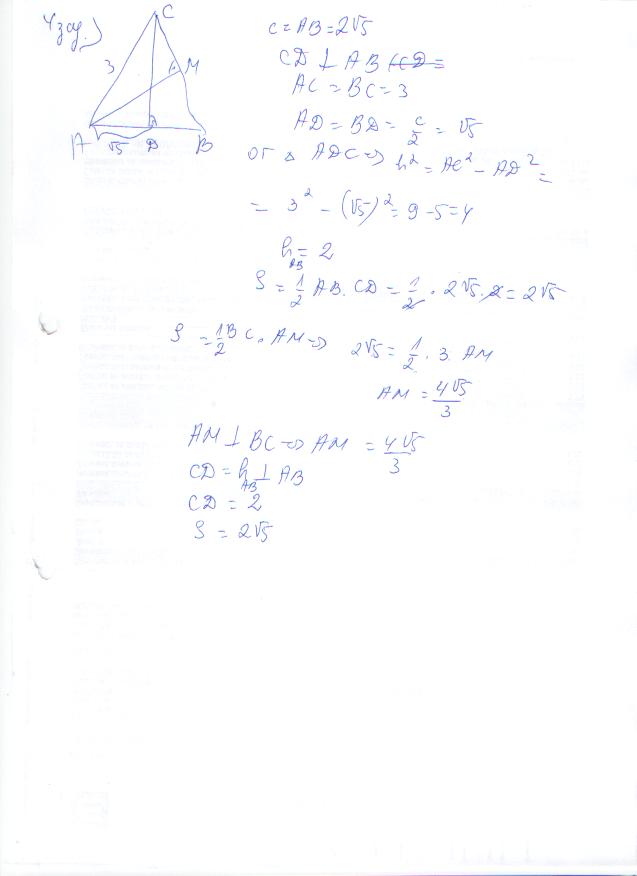 4 зад.)
C
3
M
A
√5
D
B
c = AB = 2√5
CD ⊥ AB
AC = BC = 3
AD = BD = c/2 = √5
от △ ADC => h² = AC² - AD² =
= 3² - (√5)² = 9 - 5 = 4
h_AB = 2
S = 1/2 AB. CD = 1/2 . 2√5 . 2 = 2√5
S = 1/2 BC . AM => 2√5 = 1/2 . 3. AM
AM = 4√5/3
AM ⊥ BC => AM = 4√5/3
CD = h_AB ⊥ AB
CD = 2
S = 2√5